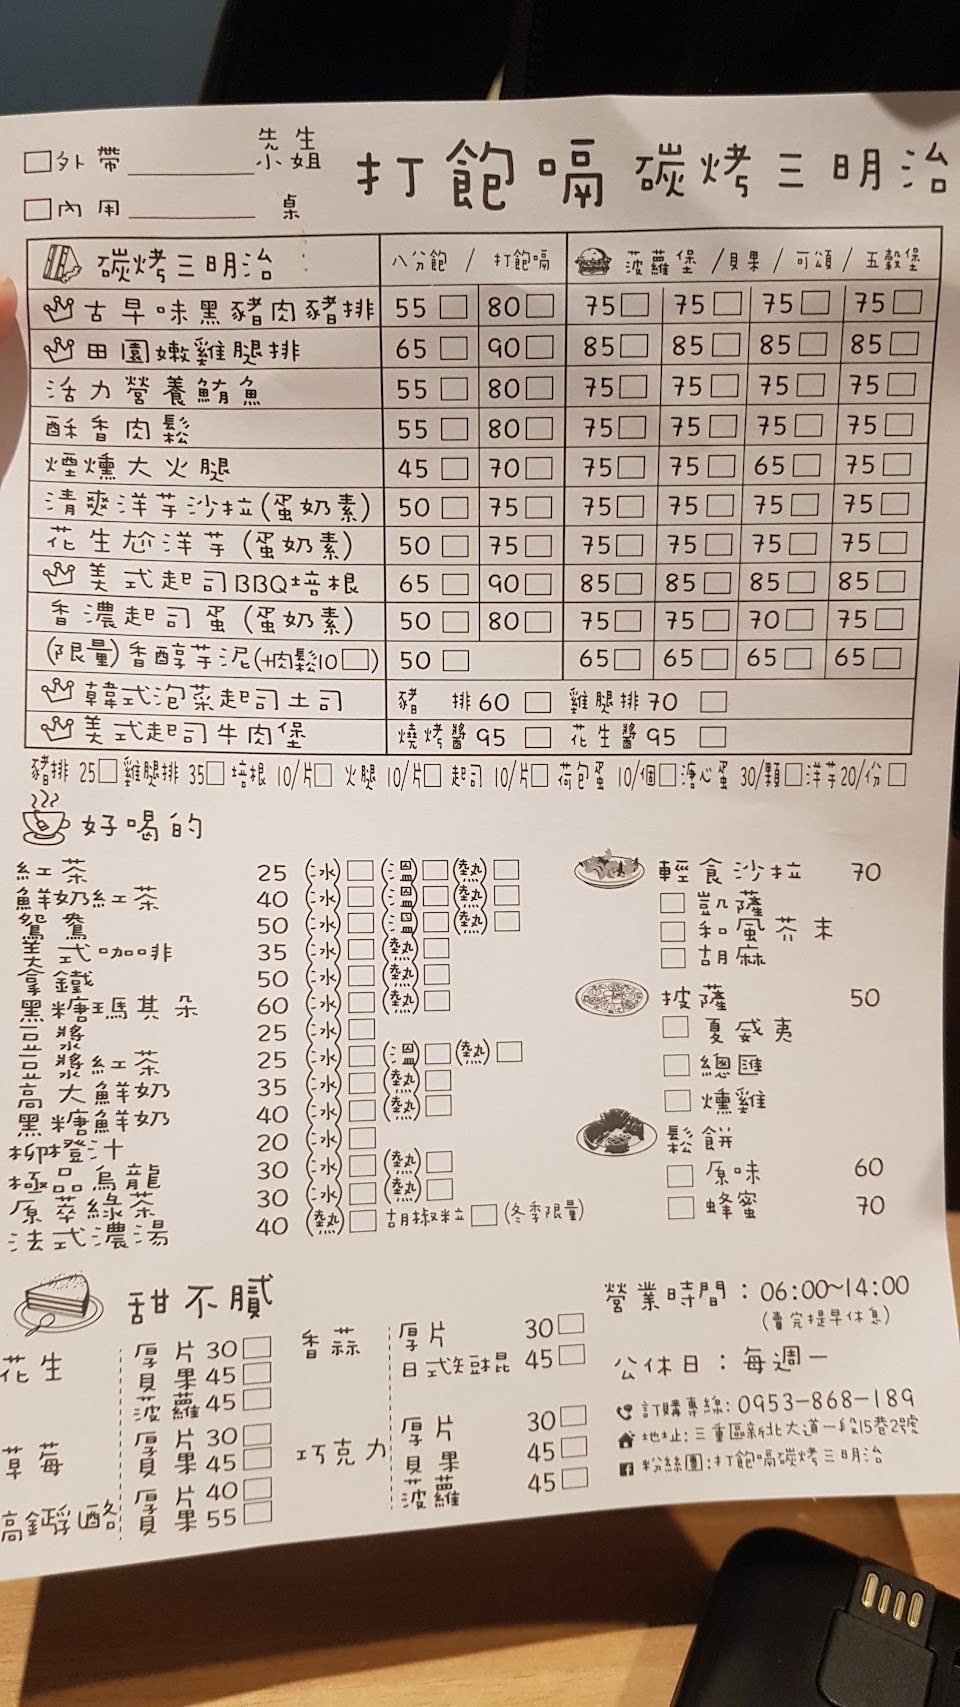 □外帶________先生小姐
□內用________桌
打飽嗝碳烤三明治
碳烤三明治 八分飽 / 打飽嗝 菠蘿堡 / 貝果 / 可頌 / 五穀堡
古早味黑豬肉豬排 55 □ 80 □ 75 □ 75 □ 75 □ 75 □
田園嫩雞腿排 65 □ 90 □ 85 □ 85 □ 85 □ 85 □
活力營養鮪魚 55 □ 80 □ 75 □ 75 □ 75 □ 75 □
酥香肉鬆 55 □ 80 □ 75 □ 75 □ 75 □ 75 □
煙燻大火腿 45 □ 70 □ 75 □ 75 □ 65 □ 75 □
清爽洋芋沙拉(蛋奶素) 50 □ 75 □ 75 □ 75 □ 75 □ 75 □
花生尬洋芋(蛋奶素) 50 □ 75 □ 75 □ 75 □ 75 □ 75 □
美式起司BBQ培根 65 □ 90 □ 85 □ 85 □ 85 □ 85 □
香濃起司蛋(蛋奶素) 50 □ 80 □ 75 □ 75 □ 70 □ 75 □
(限量)香醇芋泥(+肉鬆10□) 50 □ 65 □ 65 □ 65 □ 65 □
韓式泡菜起司土司 豬 排60 □ 雞腿排70 □
美式起司牛肉堡 燒烤醬95 □ 花生醬95 □
豬排 25□雞腿排 35□培根 10/片□ 火腿 10/片□ 起司 10/片□ 荷包蛋 10/個□溏心蛋 30/顆□洋芋20/份□
好喝的
紅茶 25 (冰)□(溫)□(熱)□
鮮奶紅茶 40 (冰)□(溫)□(熱)□
鴛鴦 50 (冰)□(溫)□(熱)□
美式咖啡 35 (冰)□(熱)□
拿鐵 50 (冰)□(熱)□
黑糖瑪其朵 60 (冰)□(熱)□
豆漿 25 (冰)□
豆漿紅茶 25 (冰)□(溫)□(熱)□
高大鮮奶 35 (冰)□(熱)□
黑糖鮮奶 40 (冰)□(熱)□
柳橙汁 20 (冰)□
極品烏龍 30 (冰)□(熱)□
原萃綠茶 30 (冰)□(熱)□
法式濃湯 40 (熱)□胡椒粒□(冬季限量)
輕食沙拉 70
□ 凱薩
□ 和風芥末
□ 胡麻
披薩 50
□ 夏威夷
□ 總匯
□ 燻雞
鬆餅
□ 原味 60
□ 蜂蜜 70
甜不膩
花生 厚片30□
貝果45□
菠蘿45□
草莓 厚片30□
貝果45□
高鈣乳酪 厚片40□
貝果55□
香蒜 厚片 30□
日式短棍 45□
巧克力 厚片 30□
貝果 45□
菠蘿 45□
營業時間：06:00~14:00
(賣完提早休息)
公休日：每週一
訂購專線:0953-868-189
地址:三重區新北大道一段15巷2號
粉絲團:打飽嗝碳烤三明治